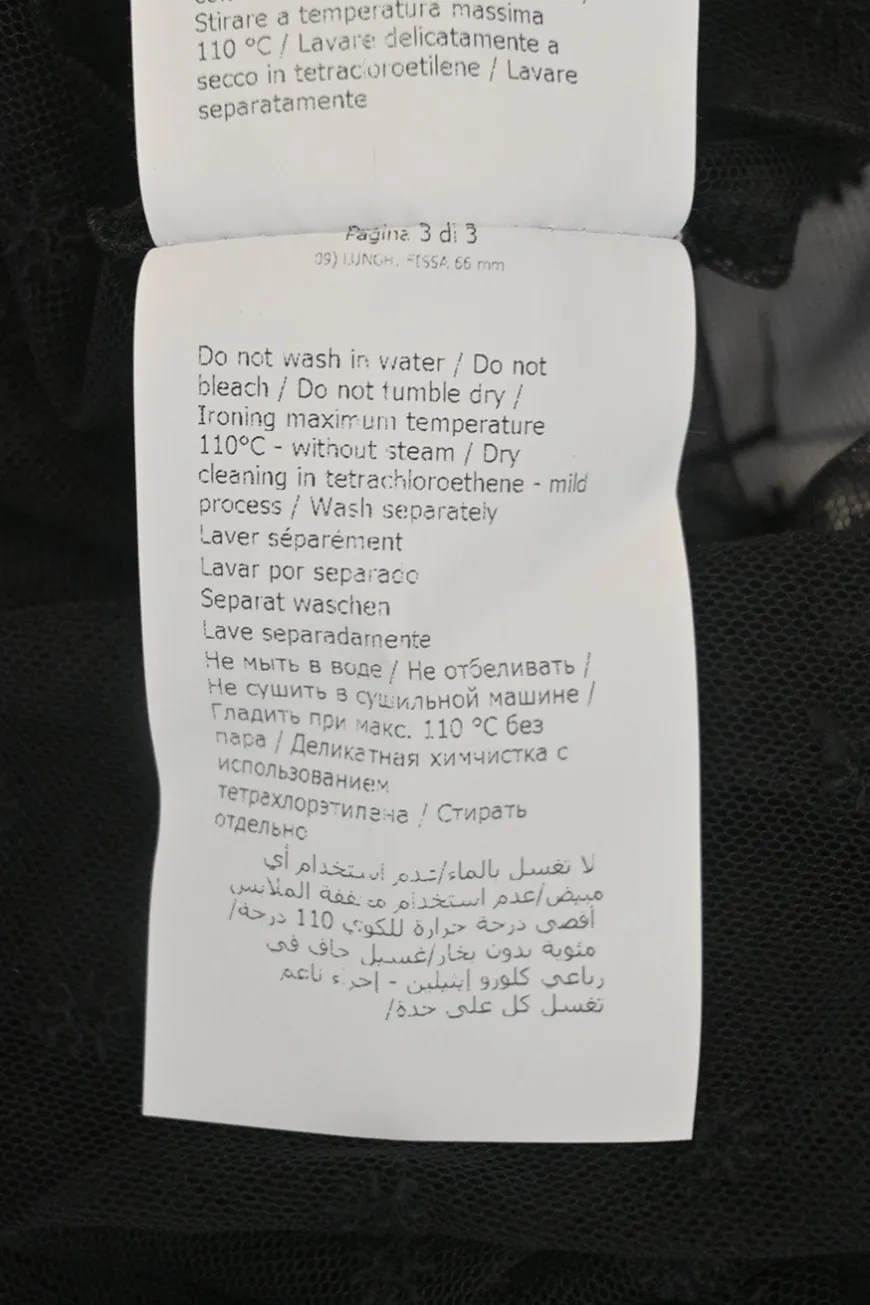 Stirare a temperatura massima
110 °C / Lavare delicatamente a
secco in tetracloroetilene / Lavare
separatamente
Pagina 3 di 3
09) LUNGH. FESSA 66 mm
Do not wash in water / Do not
bleach / Do not tumble dry /
Ironing maximum temperature
110°C - without steam / Dry
cleaning in tetrachloroethene - mild
process / Wash separately
Laver séparément
Lavar por separado
Separat waschen
Lave separadamente
Не мыть в воде / Не отбеливать /
Не сушить в сушильной машине /
Гладить при макс. 110 °C без
пара / Деликатная химчистка с
использованием
тетрахлорэтилена / Стирать
отдельно
لا تغسل بالماء/عدم استخدام أي
مبيض/عدم استخدام مجففة الملابس
/أقصى درجة حرارة للكوي 110 درجة
مئوية بدون بخار/غسيل جاف في
رباعي كلورو إيثيلين - إجراء ناعم
/تغسل كل على حدة